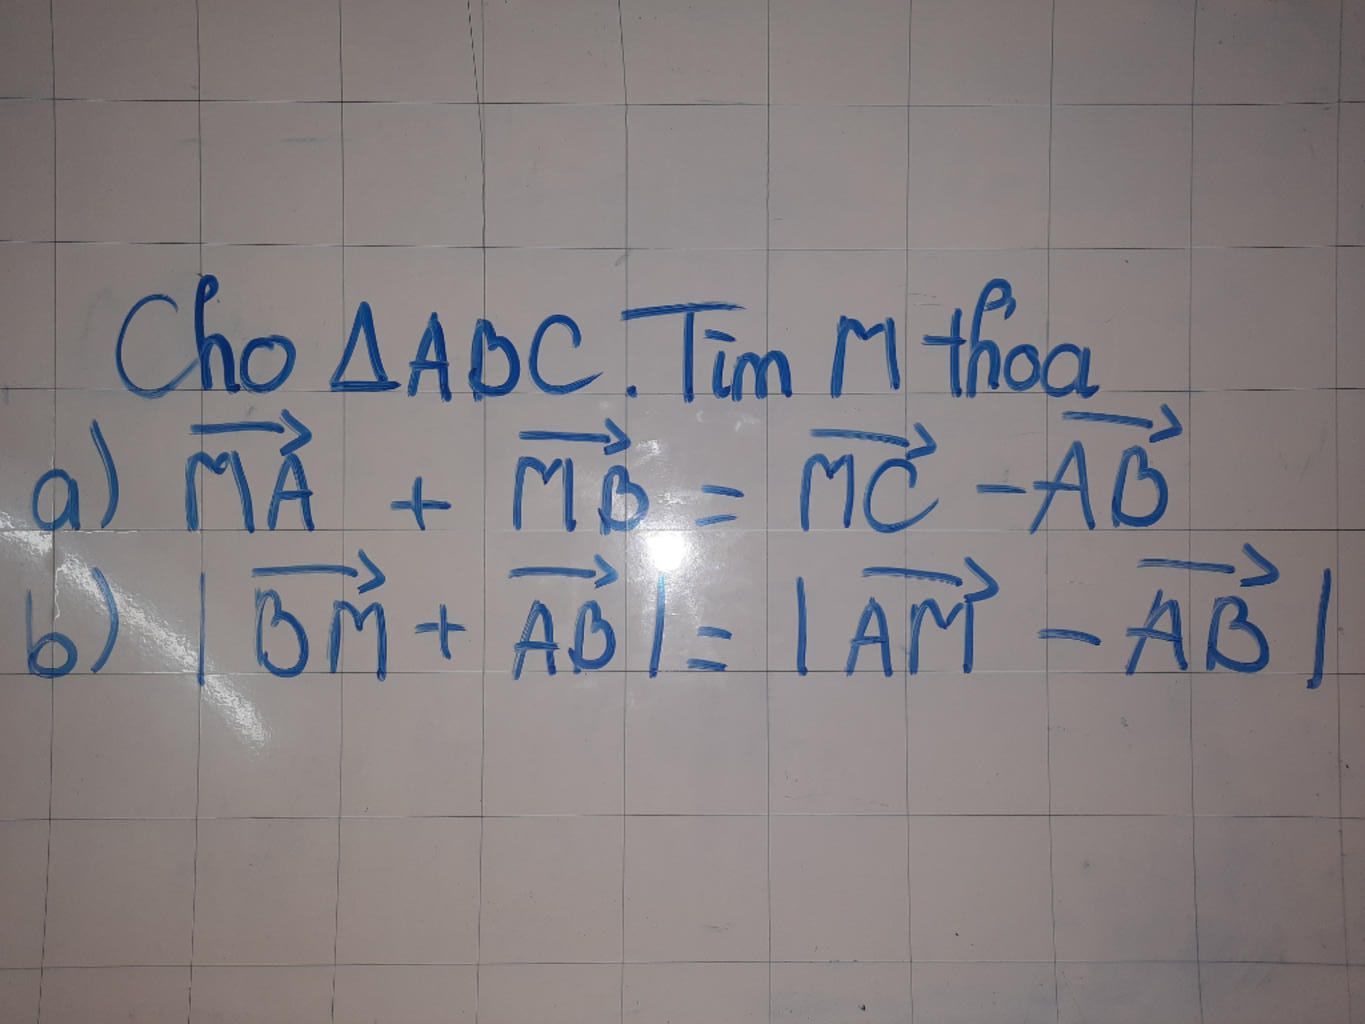 Cho ΔABC. Tìm M thỏa
a) $\overrightarrow{MA} + \overrightarrow{MB} = \overrightarrow{MC} - \overrightarrow{AB}$
b) $|\overrightarrow{BM} + \overrightarrow{AB}| = |\overrightarrow{AM} - \overrightarrow{AB}|$